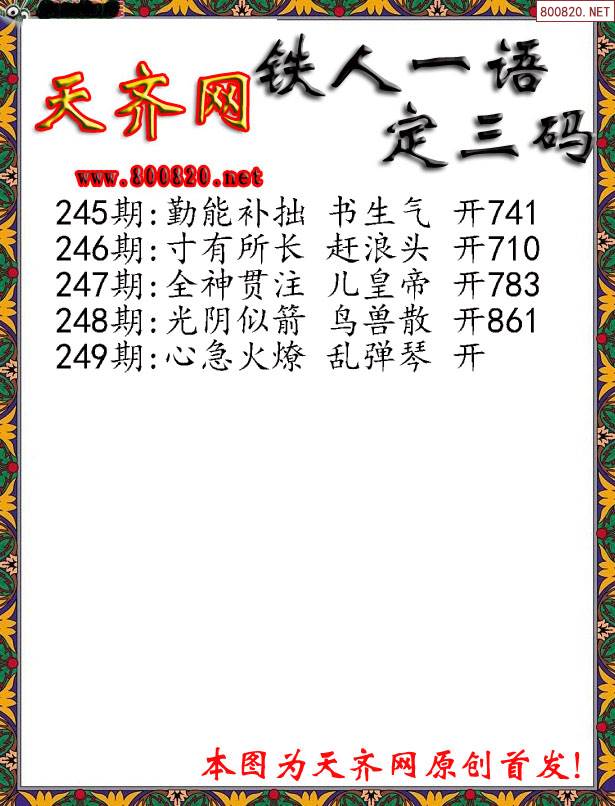 800820.NET
天齐网
铁人一语
定三码
www.800820.net
245期:勤能补拙 书生气 开741
246期:寸有所长 赶浪头 开710
247期:全神贯注 儿皇帝 开783
248期:光阴似箭 鸟兽散 开861
249期:心急火燎 乱弹琴 开
本图为天齐网原创首发!